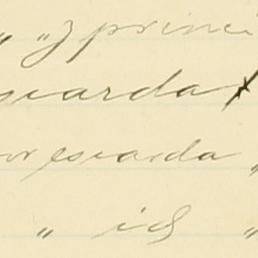 " " y princi
esuarda
or esuarda "
" id "